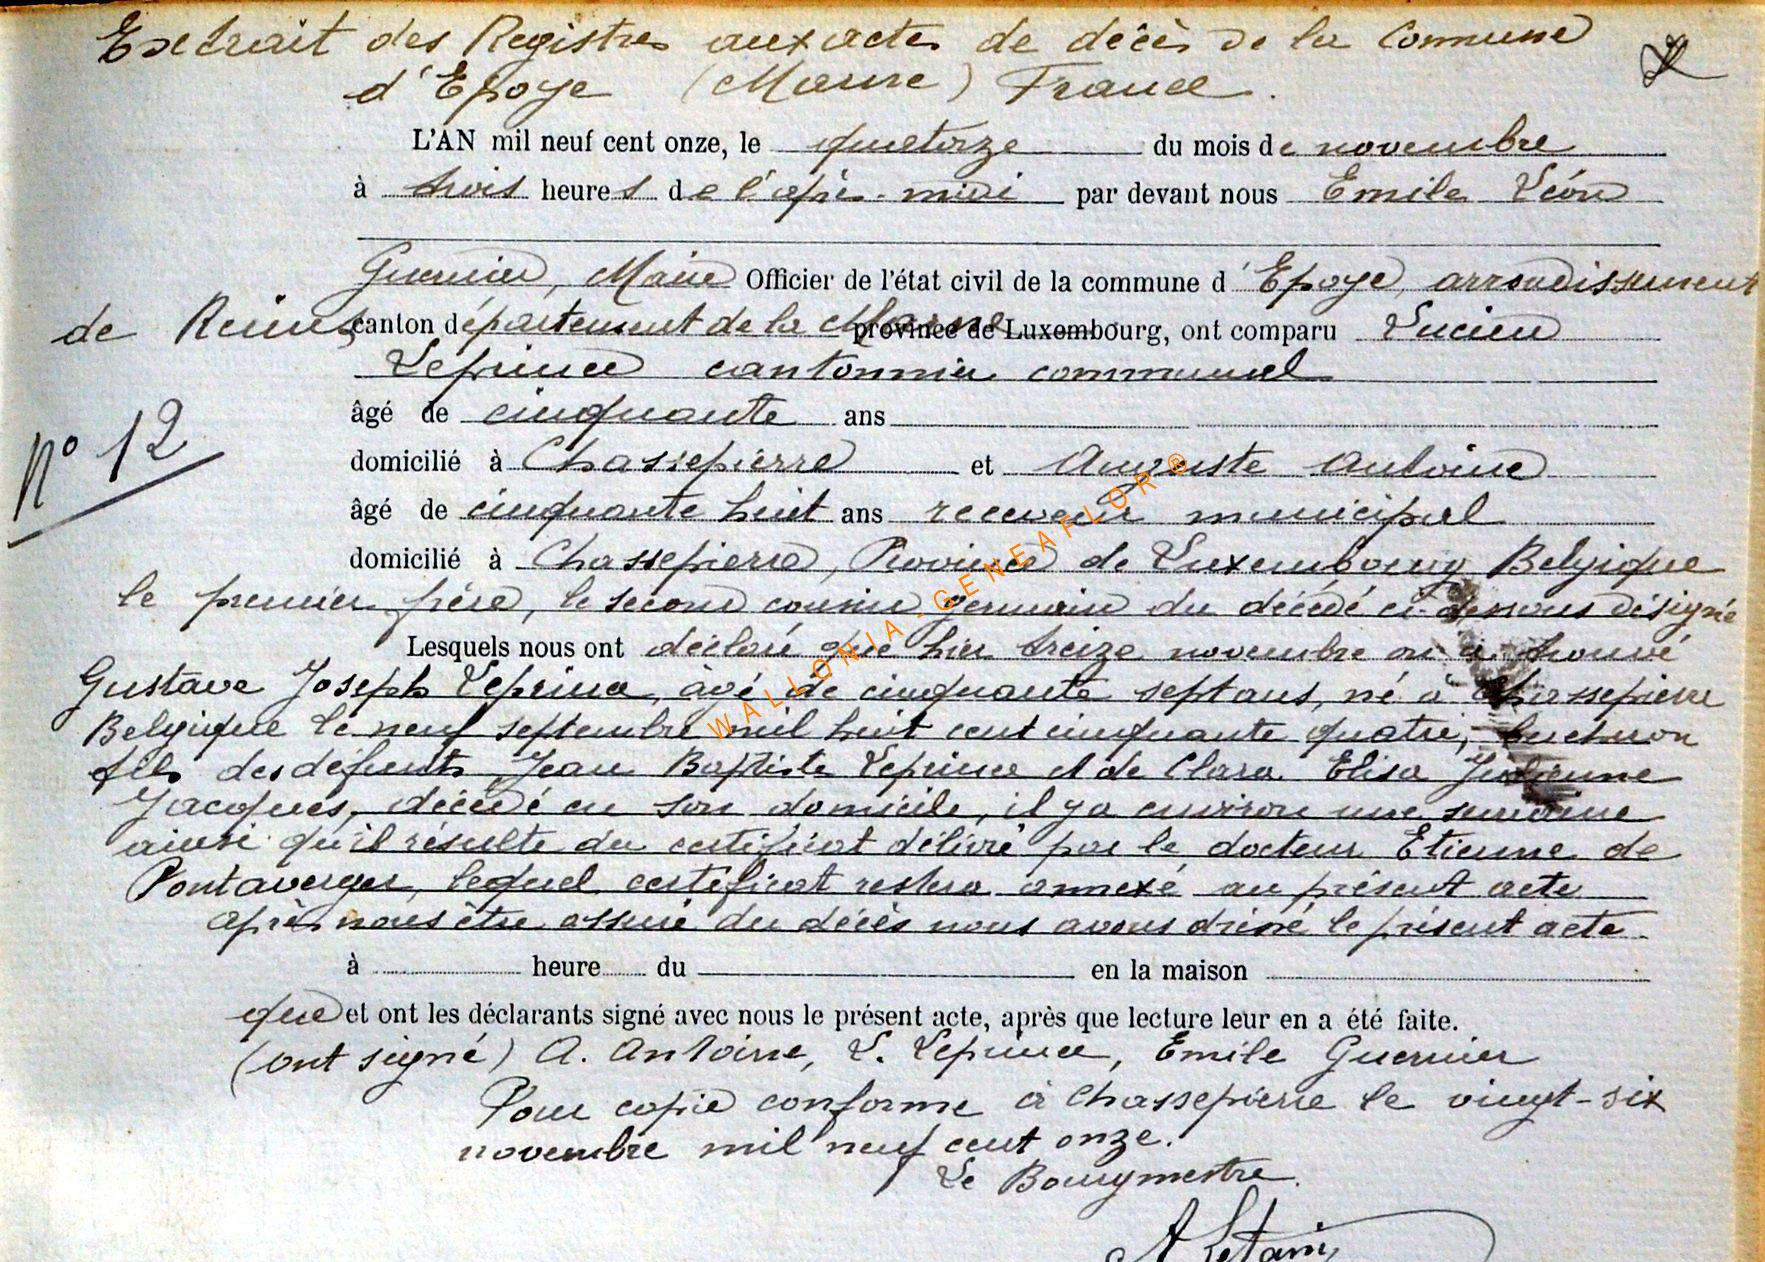 Extrait des Registres aux actes de décès de la Commune
d'Epoye (Marne) France.
L'AN mil neuf cent onze, le quatorze du mois de novembre
à trois heures de l'après-midi par devant nous Emile Léon
Guernier, Maire Officier de l'état civil de la commune d'Epoye, arrondissement
de Reims canton département de la Marne province de Luxembourg, ont comparu Lucien
Leprince cantonnier communal
âgé de cinquante ans
N° 12
domicilié à Chassepierre et Auguste Antoine
âgé de cinquante huit ans receveur municipal
domicilié à Chassepierre, Province de Luxembourg Belgique
le premier frère, le second cousin germain du décédé ci-dessous désigné
Lesquels nous ont déclaré que hier treize novembre on a trouvé
Gustave Joseph Leprince, âgé de cinquante sept ans, né à Chassepierre
Belgique le neuf septembre mil huit cent cinquante quatre, bucheron
fils des défunts Jean Baptiste Leprince et de Clara Elisa Julienne
Jacques, décédé en son domicile, il y a environ une semaine
ainsi qu'il résulte du certificat délivré par le docteur Etienne de
Pontaverger, lequel certificat restera annexé au présent acte
après nous être assuré du décès nous avons dressé le présent acte
à heure du en la maison
que et ont les déclarants signé avec nous le présent acte, après que lecture leur en a été faite.
(ont signé) A. Antoine, L. Leprince, Emile Guernier
Pour copie conforme à Chassepierre le vingt-six
novembre mil neuf cent onze.
Le Bourgmestre.
WALLONIA-GENEAFLOR®